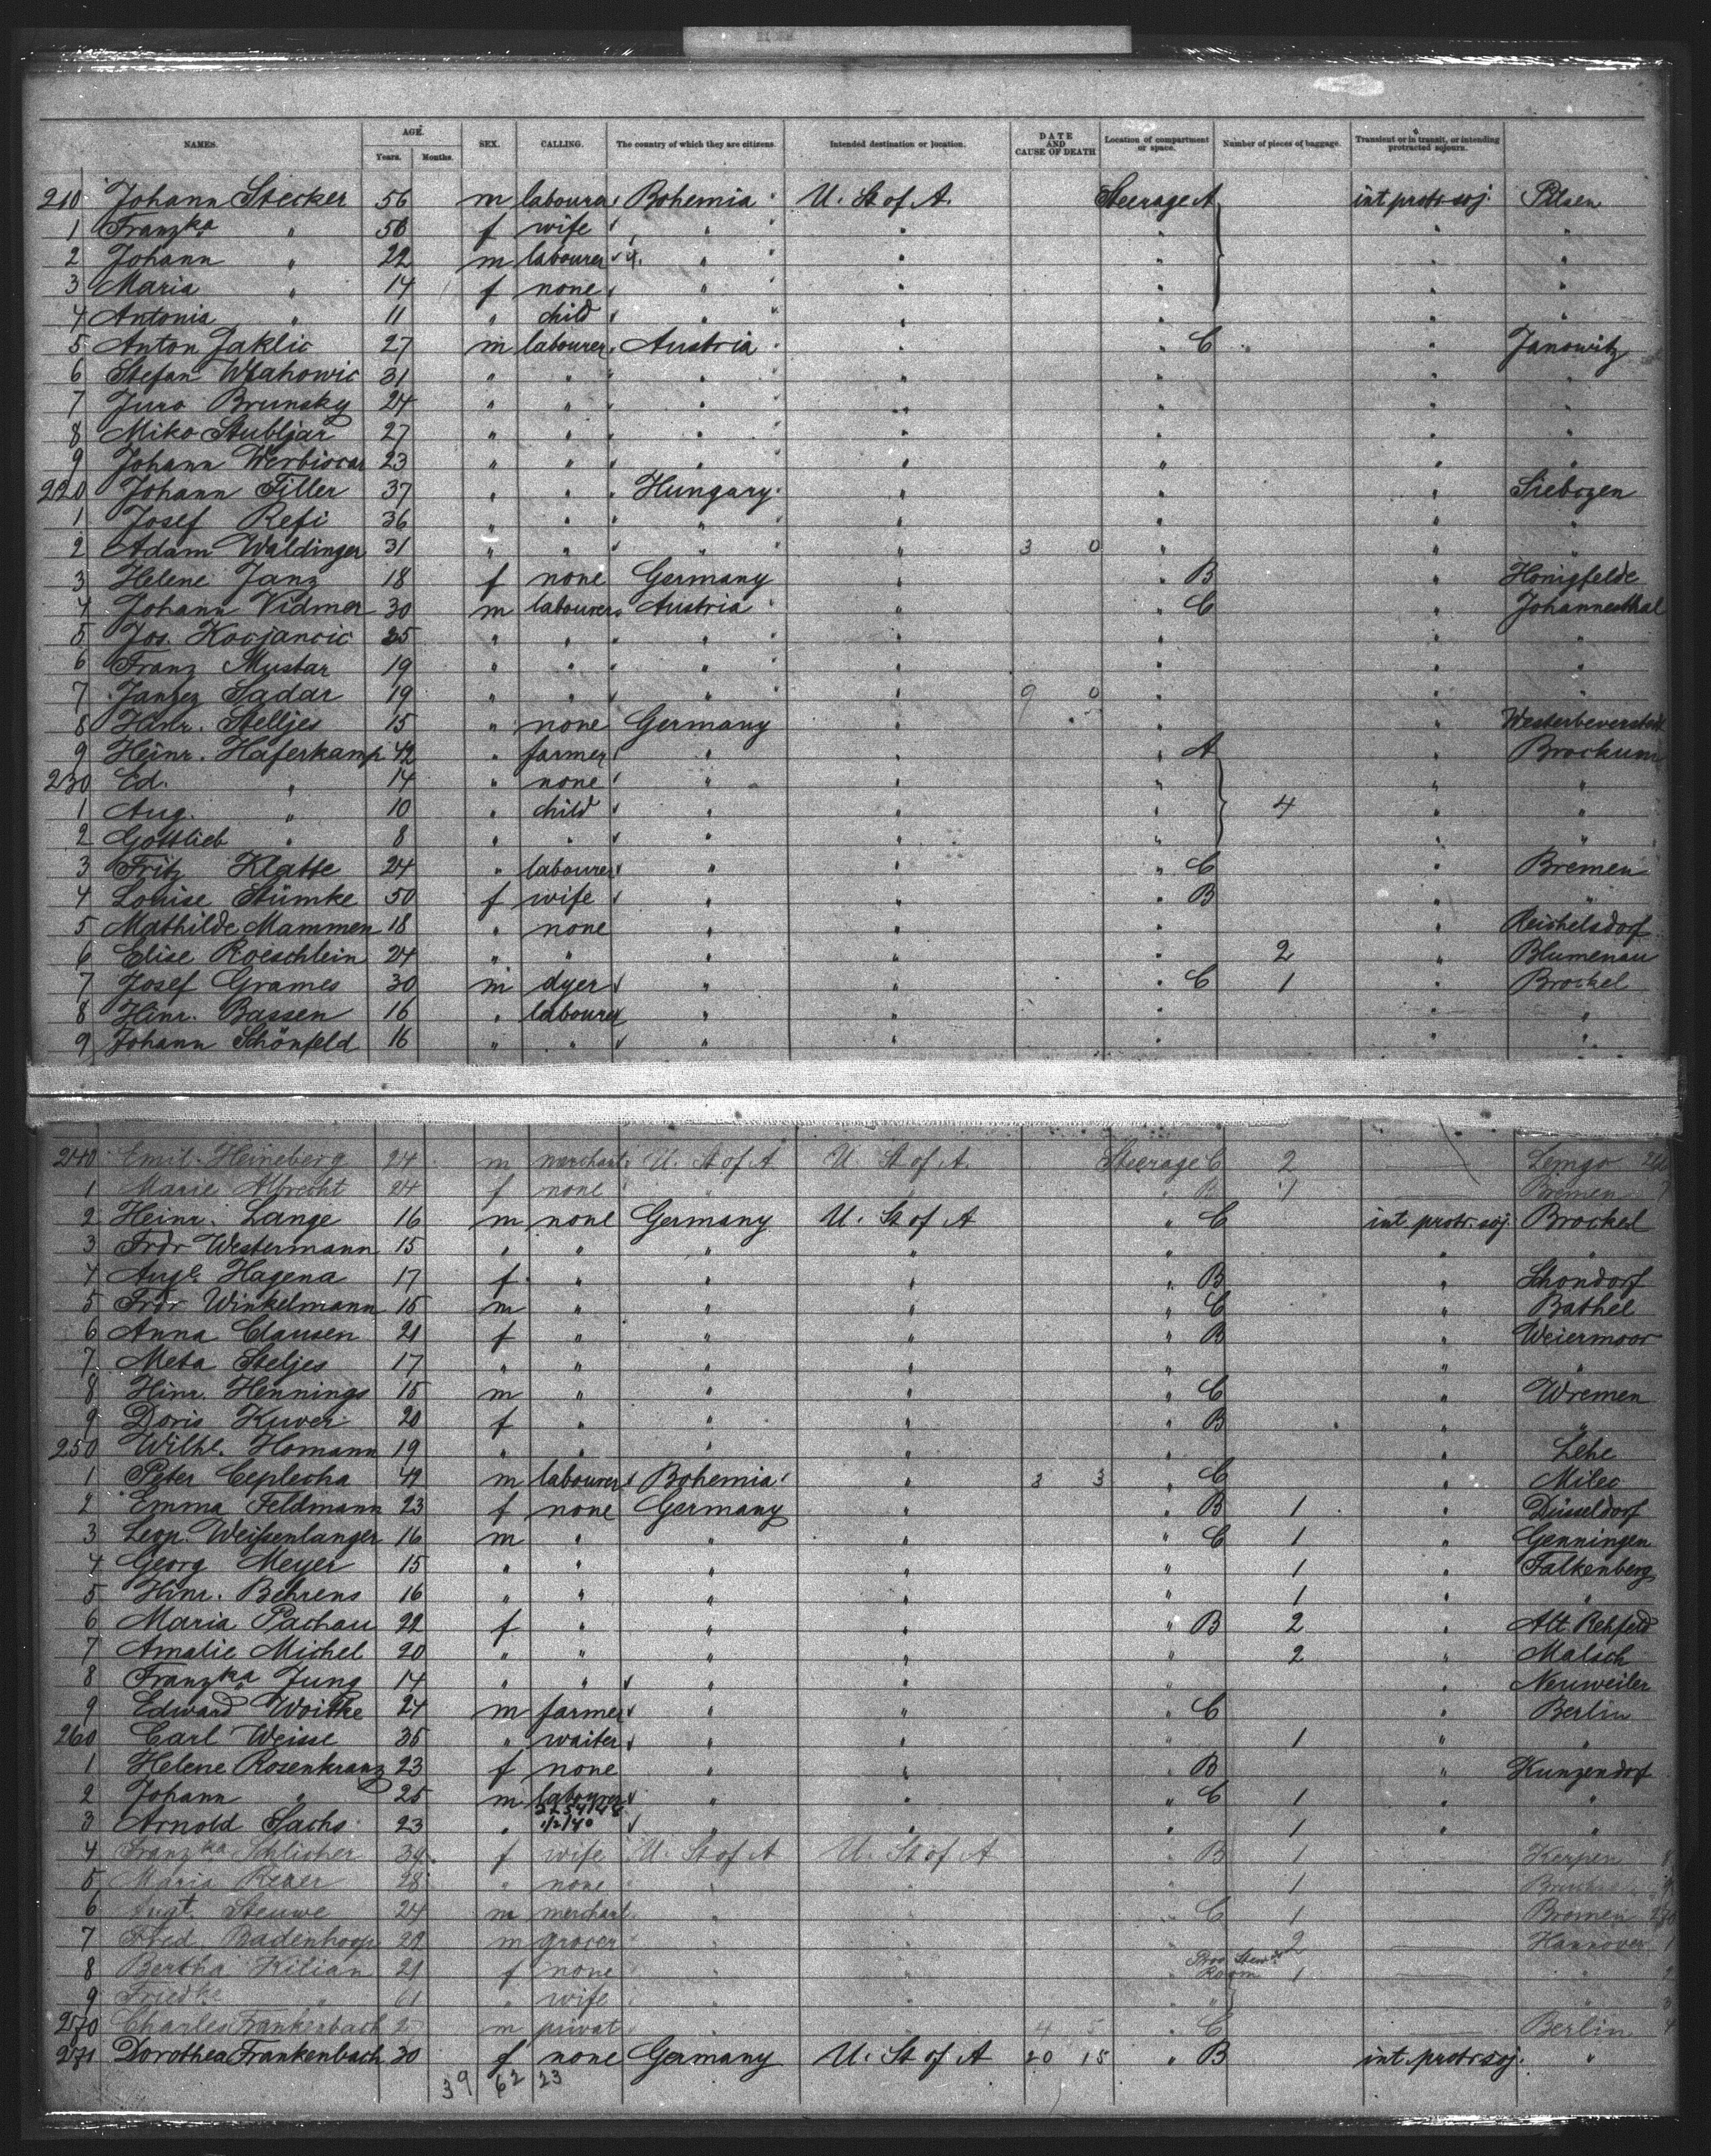 NAMES. AGE. Years. Months. SEX. CALLING. The country of which they are citizens. Intended destination or location. DATE AND CAUSE OF DEATH Location of compartment or space. Number of pieces of baggage. Transient or in transit, or intending protracted sojourn.
210 Johann Stecker 56 m labourer Bohemia U. St of A. Steerage A int protr soj. Pilsen
1 Franzka " 56 f wife " " " " "
2 Johann " 22 m labourer " " " " "
3 Maria " 14 f none " " " " "
4 Antonia " 11 " child " " " " "
5 Anton Jaklic 27 m labourer Austria " " C " Janowitz
6 Stefan Wlahowic 31 " " " " " " "
7 Juro Brunsky 24 " " " " " " "
8 Miko Stubljar 27 " " " " " " "
9 Johann Werbiocar 23 " " " " " " "
220 Johann Filler 37 " " Hungary " " " Siebozen
1 Josef Refi 36 " " " " " " "
2 Adam Waldinger 31 " " " " 3 0 " " "
3 Helene Janz 18 f none Germany " " B " Honigfelde
4 Johann Vidmer 30 m labourer Austria " " C " Johannesthal
5 Jos. Kocjancic 25 " " " " " " "
6 Franz Mustar 19 " " " " " " "
7 Janzez Sadar 19 " " " " 9 0 " " "
8 Hinr. Stelljes 15 " none Germany " " " Westerbeverstedt
9 Heinr. Haferkamp 42 " farmer " " " A " Brockum
230 Ed. " 14 " none " " " " "
1 Aug. " 10 " child " " " 4 " "
2 Gottlieb " 8 " " " " " " "
3 Fritz Klatte 24 " labourer " " " C " Bremen
4 Louise Stümke 50 f wife " " " B " "
5 Mathilde Mammen 18 " none " " " " Reichelsdorf
6 Elise Roeschlein 24 " " " " " 2 " Blumenau
7 Josef Grames 30 m dyer " " " C 1 " Brockel
8 Hinr. Bassen 16 " labourer " " " " "
9 Johann Schönfeld 16 " " " " " " "
240 Emil Heineberg 24 m merchant U. St of A. U. St of A. Steerage C 2 Lemgo
1 Marie Albrecht 24 f none " " " B 1 Bremen
2 Heinr. Lange 16 m none Germany U. St of A " C int protr. soj. Brockel
3 Frdr Westermann 15 " " " " " " "
4 Auge. Hagena 17 f " " " " B " Schondorf
5 Frdr Winkelmann 15 m " " " " C " Bathel
6 Anna Clausen 21 f " " " " B " Weiermoor
7 Meta Steljes 17 " " " " " " "
8 Hinr. Hennings 15 m " " " " C " Wremen
9 Doris Kuver 20 f " " " " B " "
250 Wilhe. Homann 19 " " " " " " Lehe
1 Peter Ceplecha 49 m labourer Bohemia " 3 3 " C " Milec
2 Emma Feldmann 23 f none Germany " " B 1 " Düsseldorf
3 Leop. Weißenlanger 16 m " " " " C 1 " Genningen
4 Georg Meyer 15 " " " " " 1 " Falkenberg
5 Hinr. Behrens 16 " " " " " 1 " "
6 Maria Pachau 22 f " " " " B 2 " Alt. Rehfeld
7 Amalie Michel 20 " " " " " 2 " Malsch
8 Franzka Jung 14 " " " " " " Neuweiler
9 Edward Woitke 24 m farmer " " " C " Berlin
260 Carl Weisse 35 " waiter " " " 1 " "
1 Helene Rosenkranz 23 f none " " " B " Kunzendorf
2 Johann " 25 m labourer " " " C 1 " "
3 Arnold Sachs 23 " 1/2/40 " " " 1 " "
4 Franzka Schlicher 34 f wife U. St of A U. St of A " B 1 Kerpen
5 Maria Rexer 28 " none " " " 1
6 Augt. Steuwe 24 m merchant " " " C 1 Bremen
7 Fred. Badenhoop 29 m grocer " " " 2 Hannover
8 Bertha Kilian 21 f none " " Room 1 "
9 Friedke " 61 " wife " " " "
270 Charles Frankenbach m privat " " 4 5 " C Berlin
271 Dorothea Frankenbach 30 f none Germany U. St of A 20 15 " B int. protr. soj. "
39 62 23